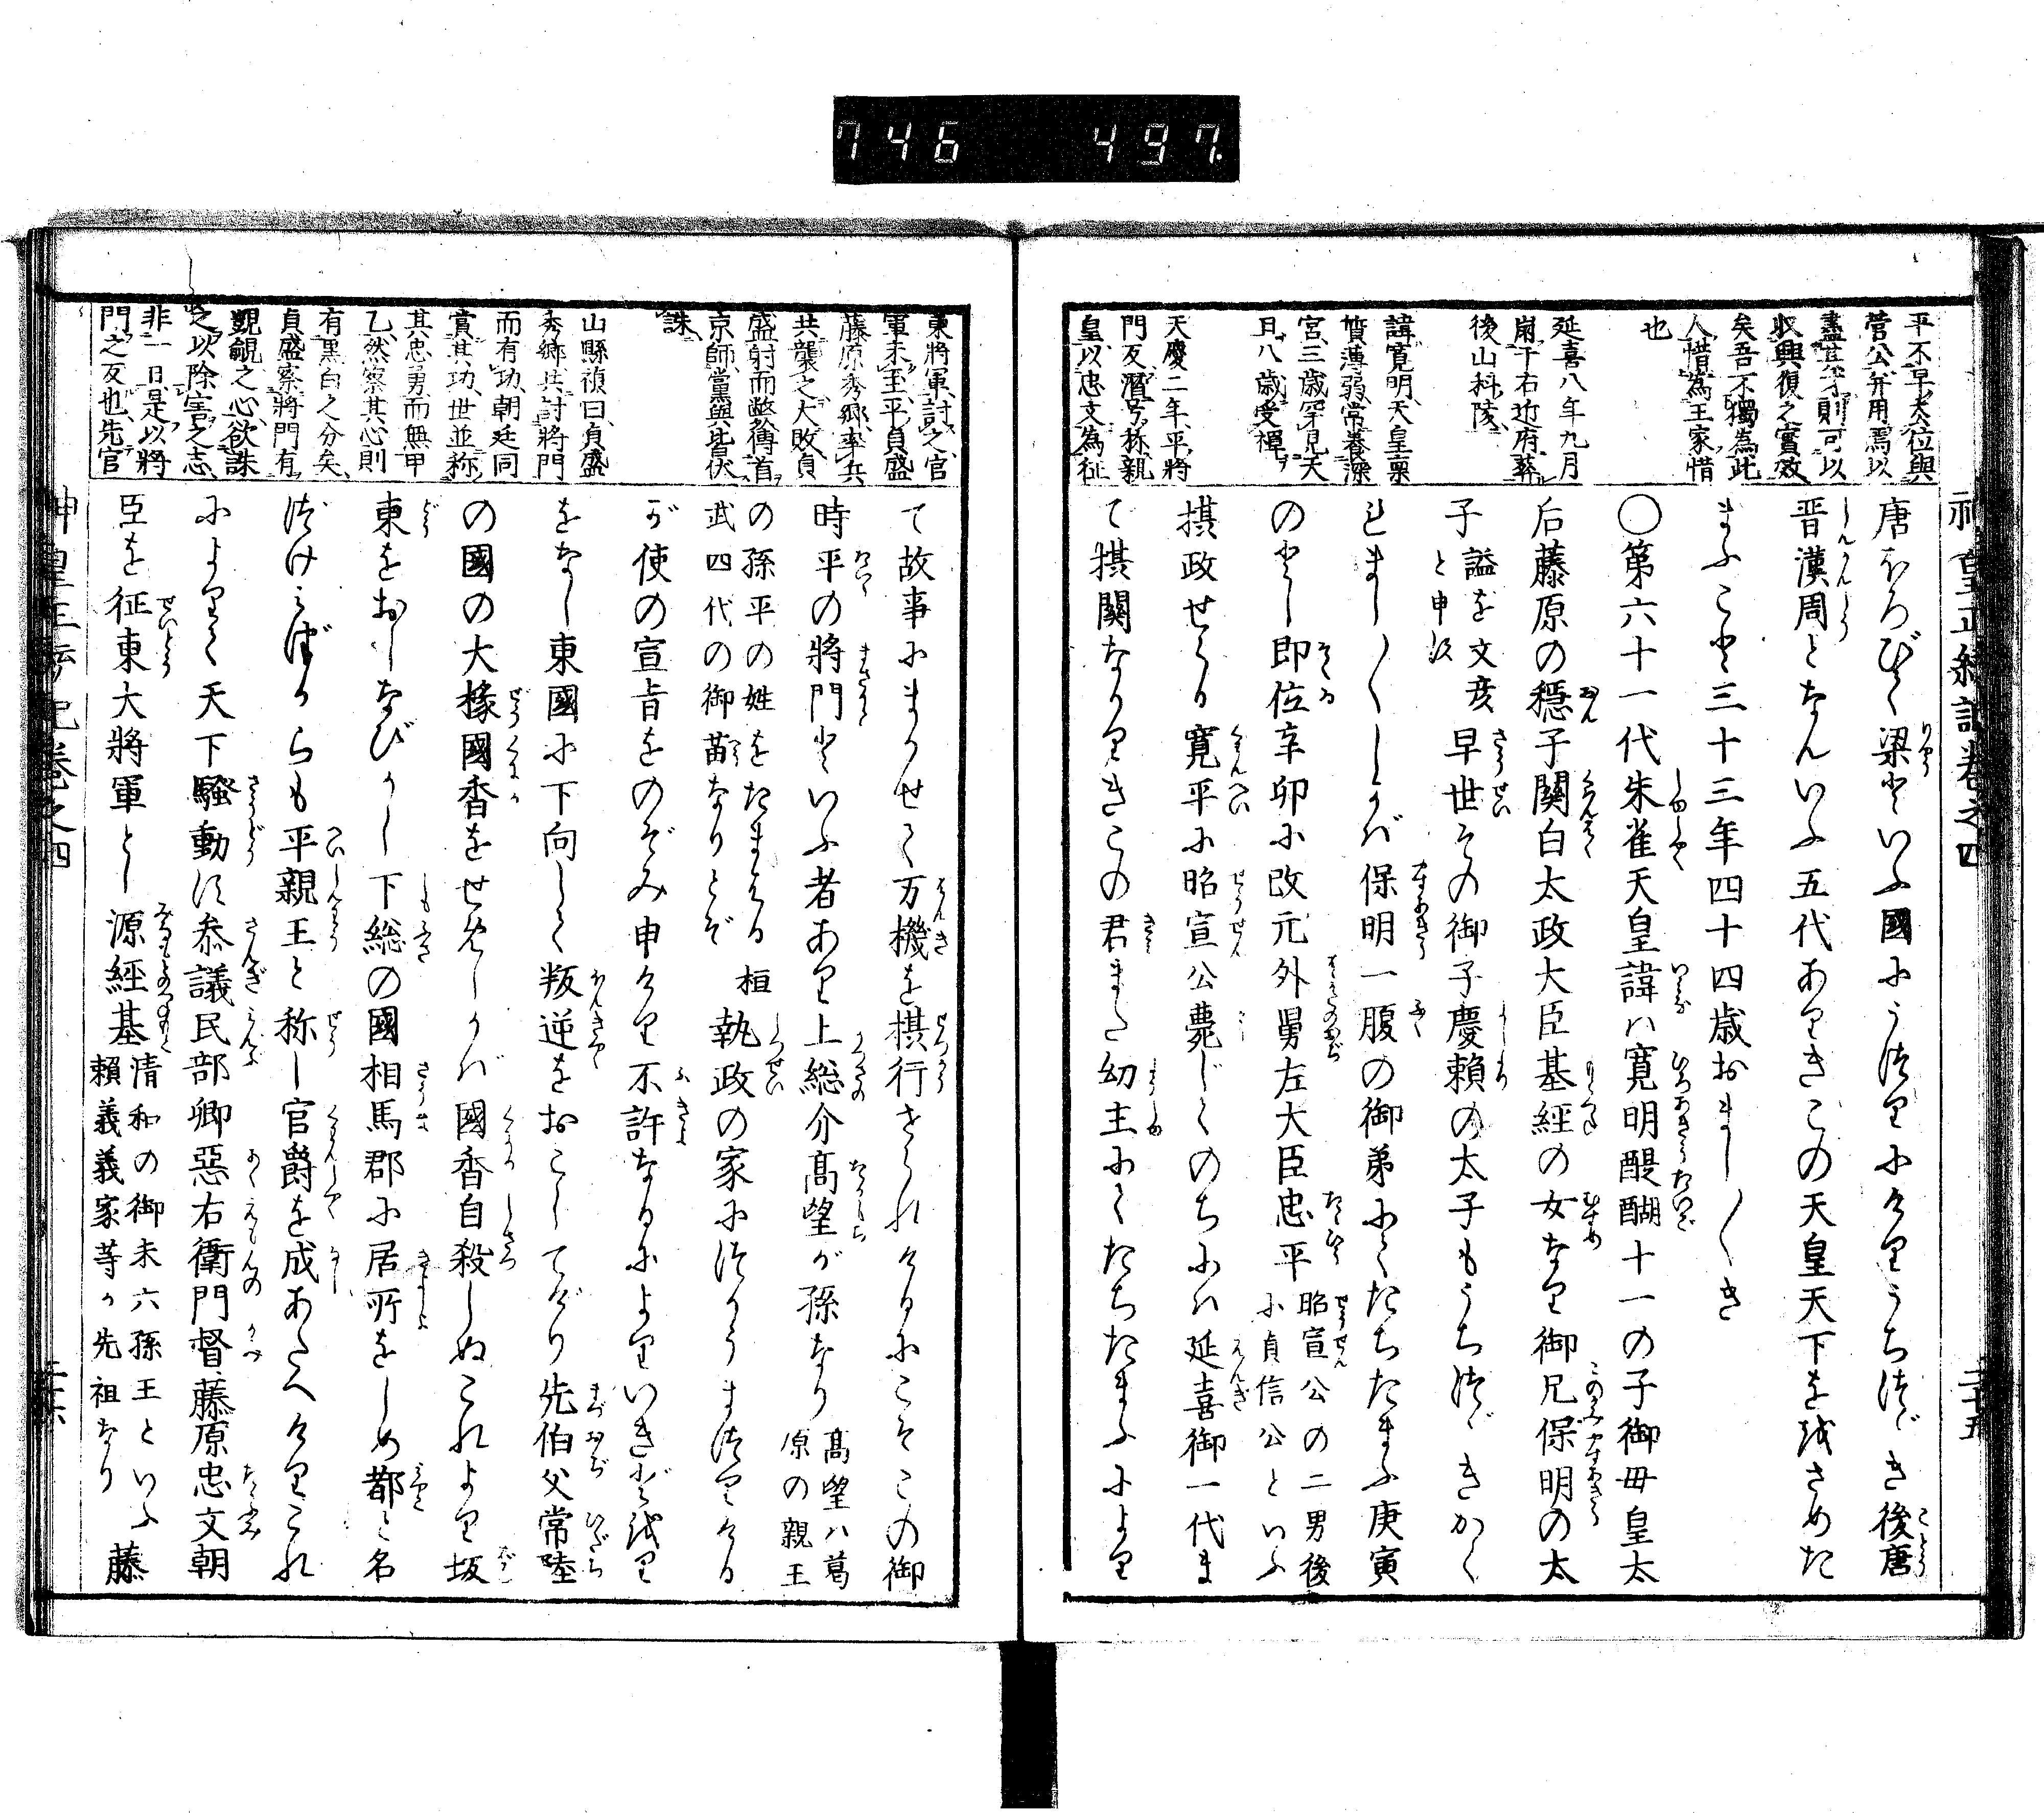 746 497.
平不早夫位與
菅公弁用焉以
盡其才則可以
収興復之實效
矣吾不獨為此
人惜為王家惜
也
延喜八年九月
崩于右近府葬
後山科陵
諱寛明天皇稟
質薄弱常養深
宮三歳穿見天
日八歳受禪
天慶二年平將
門反潛号称親
皇以忠文為征
神皇正統記巻之四 二十五
唐ほろびて梁といふ國にうつりにけりうちつゞき後唐
晋漢周となんいふ五代ありきこの天皇天下を越さめた
まふこと三十三年四十四歳おまし〳〵き
〇第六十一代朱雀天皇諱ハ寛明醍醐十一の子御母皇太
后藤原の穏子関白太政大臣基經の女なり御兄保明の太
子謚を文彦と申次早世その御子慶頼の太子もうちつゞきかく
れまし〳〵しかバ保明一腹の御弟にてたちたまふ庚寅
のとし即位辛卯に改元外舅左大臣忠平昭宣公の二男後に貞信公といふ
摂政せらる寛平に昭宣公薨じてのちにハ延喜御一代ま
て摂關なかりきこの君また幼主にてたちたまふにより
東將軍討之官
軍未至平貞盛
藤原秀郷率兵
共襲之大敗貞
盛射而斃傳首
京師黨與皆伏
誅
山縣禎曰貞盛
秀郷共討將門
而有功朝廷同
賞其功世並称
其忠勇而無甲
乙然察其心則
有黒白之分矣
貞盛察將門有
覬覦之心欲誅
之以除害之志
非一日是以將
門之反也先官
て故事にまかせて万機を摂行せられけるにこそこの御
時平の將門といふ者あり上総介髙望が孫なり髙望ハ葛原の親王
の孫平の姓をたまはる桓武四代の御苗なりとぞ執政の家につかうまつりける
が使の宣旨をのぞみ申けり不許なるによりいきどほり
をなし東國に下向して叛逆をおこしてげり先伯父常陸
の國の大掾國香をせめしかバ國香自殺しぬこれより坂
東をおしなびかし下総の國相馬郡に居所をしめ都と名
づけみづからも平親王と称し官爵を成あたへけりこれ
によりて天下騒動次参議民部卿惡右衛門督藤原忠文朝
臣を征東大將軍とし源經基清和の御末六孫王といふ頼義義家等か先祖なり藤
神皇正統記巻之四 二十六